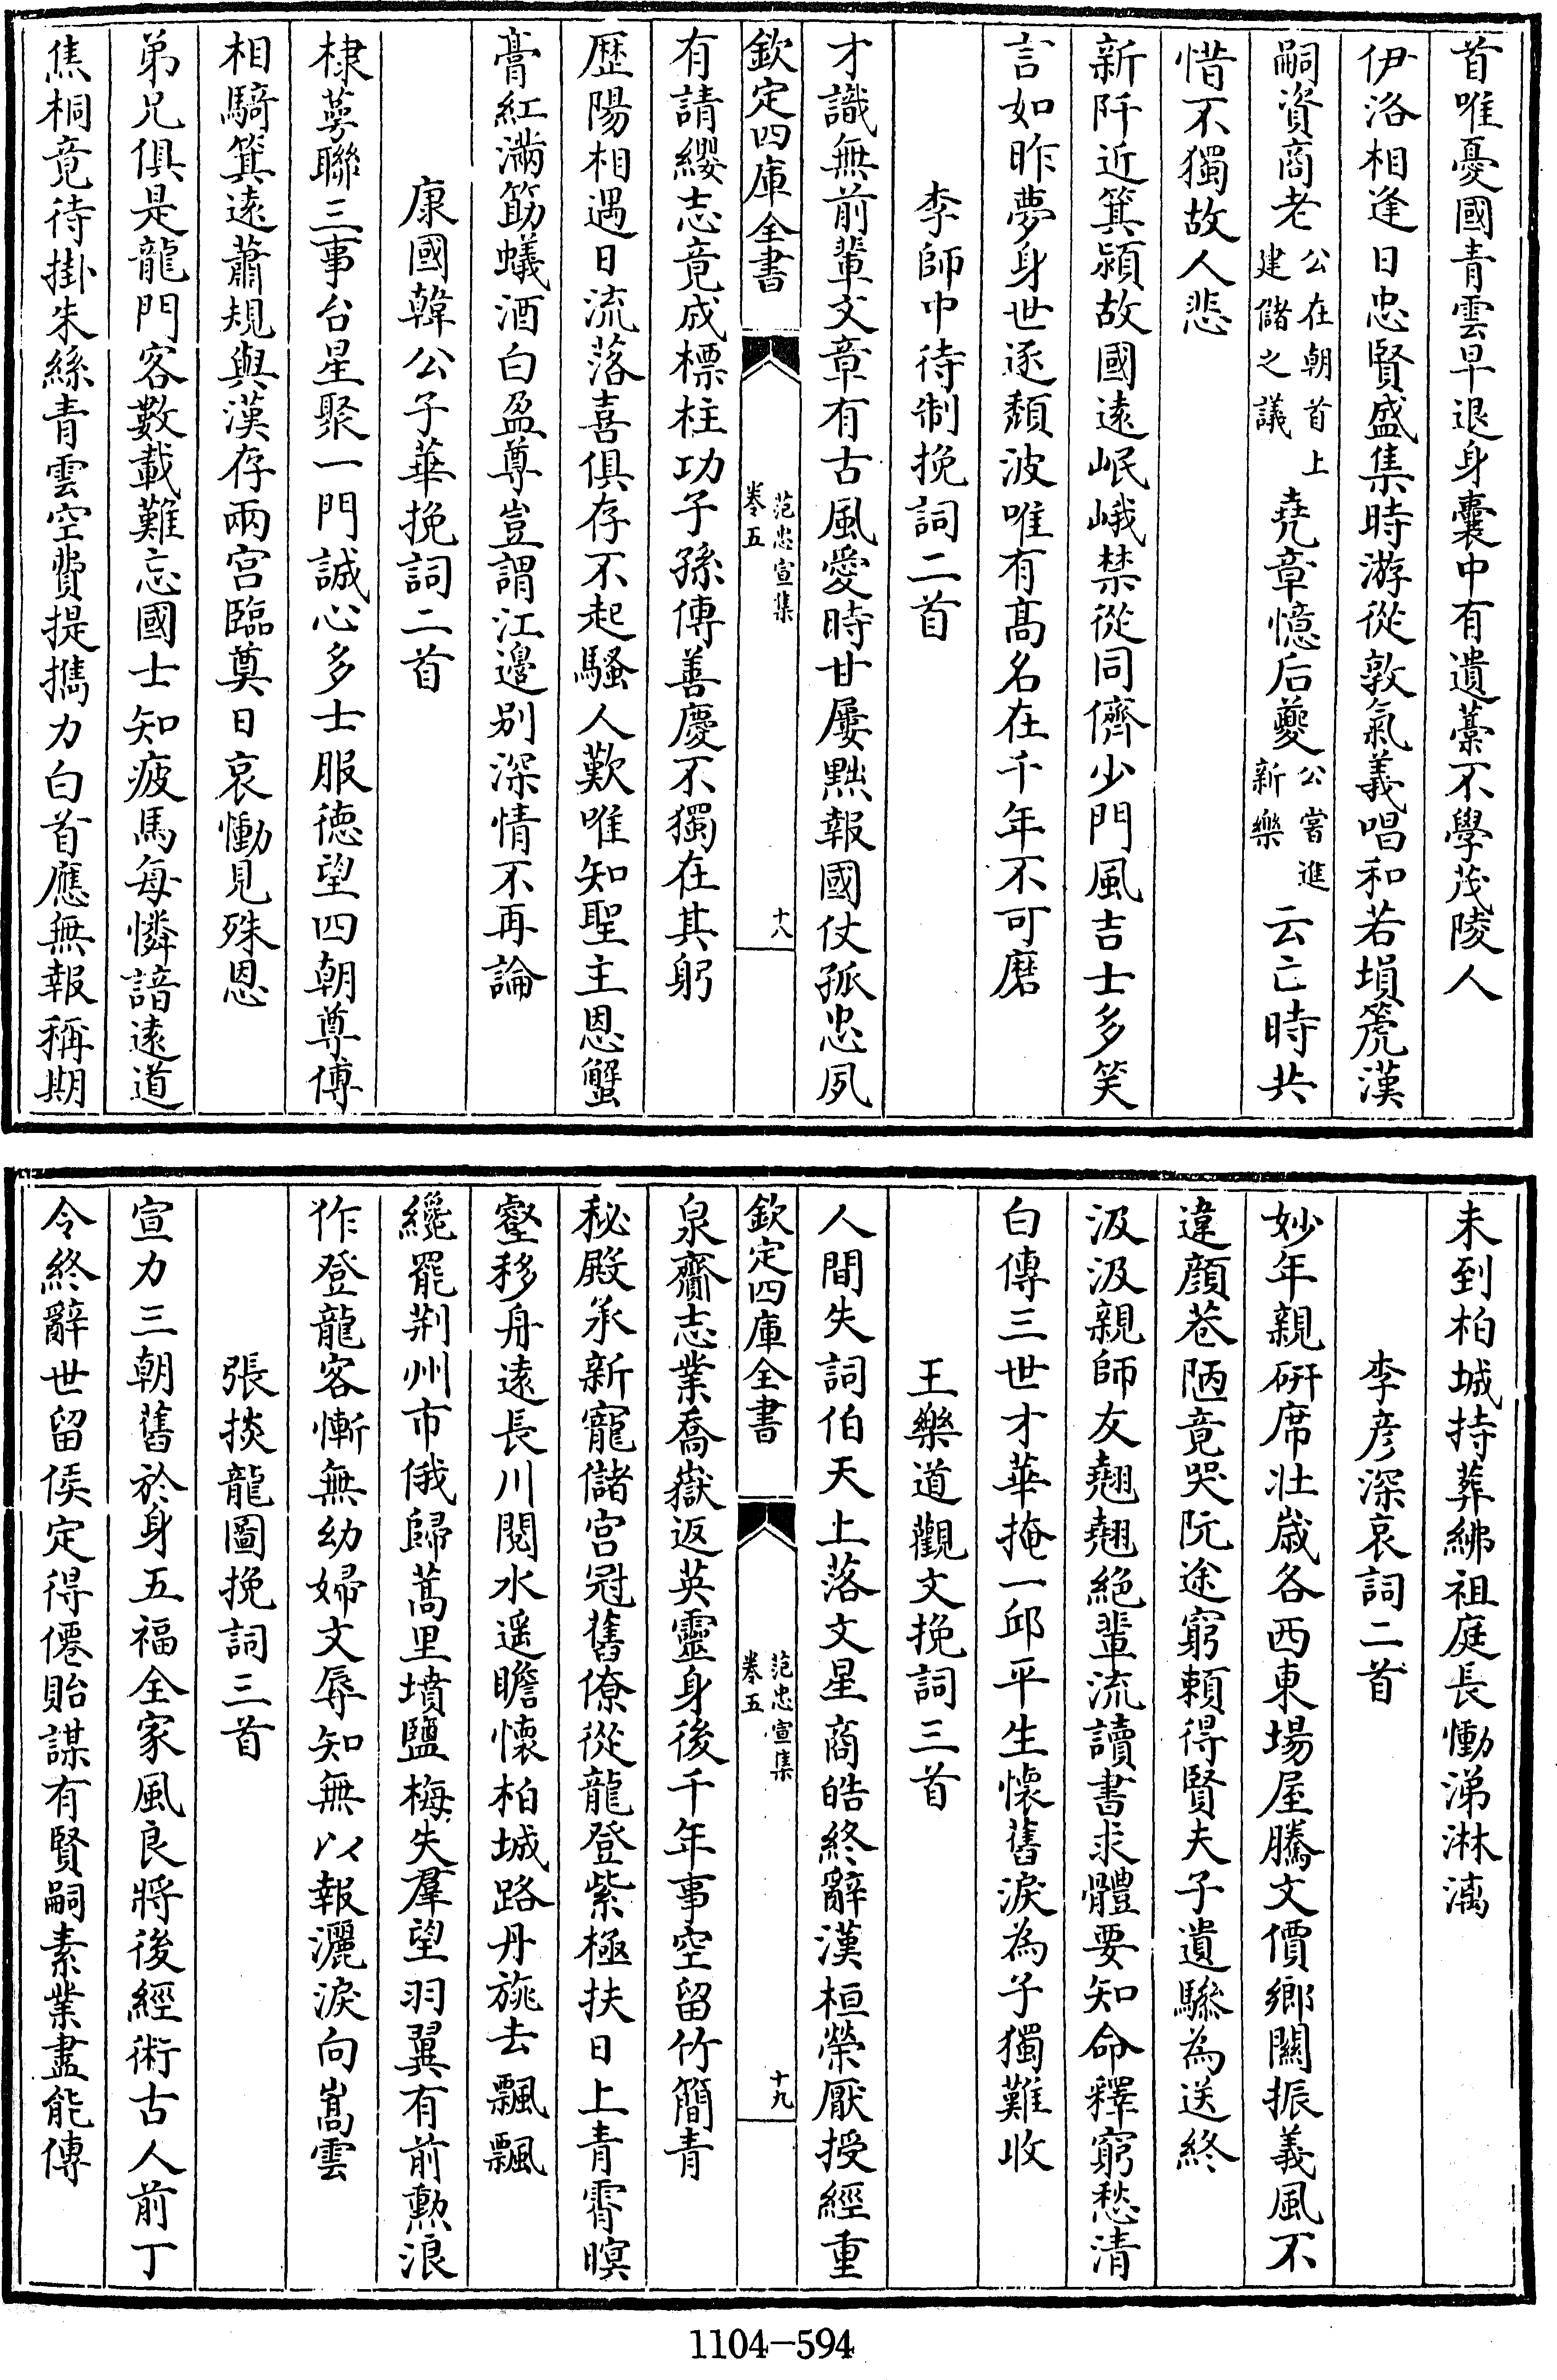 首唯憂國青雲早退身囊中有遺藁不學茂陵人
伊洛相逢日忠賢盛集時游從敦氣義唱和若塤箎漢
嗣資商老公在朝首上建儲之議堯章憶后夔公嘗進新樂云亡時共
惜不獨故人悲
新阡近箕潁故國遠岷峨禁從同儕少門風吉士多笑
言如昨夢身世逐頽波唯有髙名在千年不可磨
李師中待制挽詞二首
才識無前輩文章有古風愛時甘屢黜報國仗孤忠夙
欽定四庫全書
范忠宣集
卷五
十八
有請纓志竟成標柱功子孫傳善慶不獨在其躬
歴陽相遇日流落喜俱存不起騷人歎唯知聖主恩蟹
膏紅滿筯蟻酒白盈尊豈謂江邊别深情不再論
康國韓公子華挽詞二首
棣萼聯三事台星聚一門誠心多士服徳望四朝尊傅
相騎箕遠蕭規與漢存兩宫臨奠日哀慟見殊恩
弟兄俱是龍門客數載難忘國士知疲馬每憐諳逺道
焦桐竟待掛朱絲青雲空費提攜力白首應無報稱期
未到柏城持葬紼祖庭長慟涕淋漓
李彦深哀詞二首
妙年親硏席壯歲各西東場屋騰文價鄉闗振義風不
違顔巷陋竟哭阮途窮頼得賢夫子遺驂為送終
汲汲親師友翹翹絶輩流讀書求體要知命釋窮愁清
白傳三世才華掩一邱平生懷舊淚為子獨難收
王樂道觀文挽詞三首
人間失詞伯天上落文星商皓終辭漢桓榮厭授經重
欽定四庫全書
范忠宣集
卷五
十九
泉齎志業喬嶽返英靈身後千年事空留竹簡青
秘殿承新寵儲宫冠舊僚從龍登紫極扶日上青霄暝
壑移舟遠長川閱水遥瞻懷柏城路丹旐去飄飄
纔罷荆州市俄歸蒿里墳鹽梅失羣望羽翼有前勲浪
作登龍客慚無幼婦文辱知無以報灑淚向嵩雲
張掞龍圖挽詞三首
宣力三朝舊於身五福全家風良將後經術古人前丁
令終辭世留侯定得僊貽謀有賢嗣素業盡能傳
1104-594